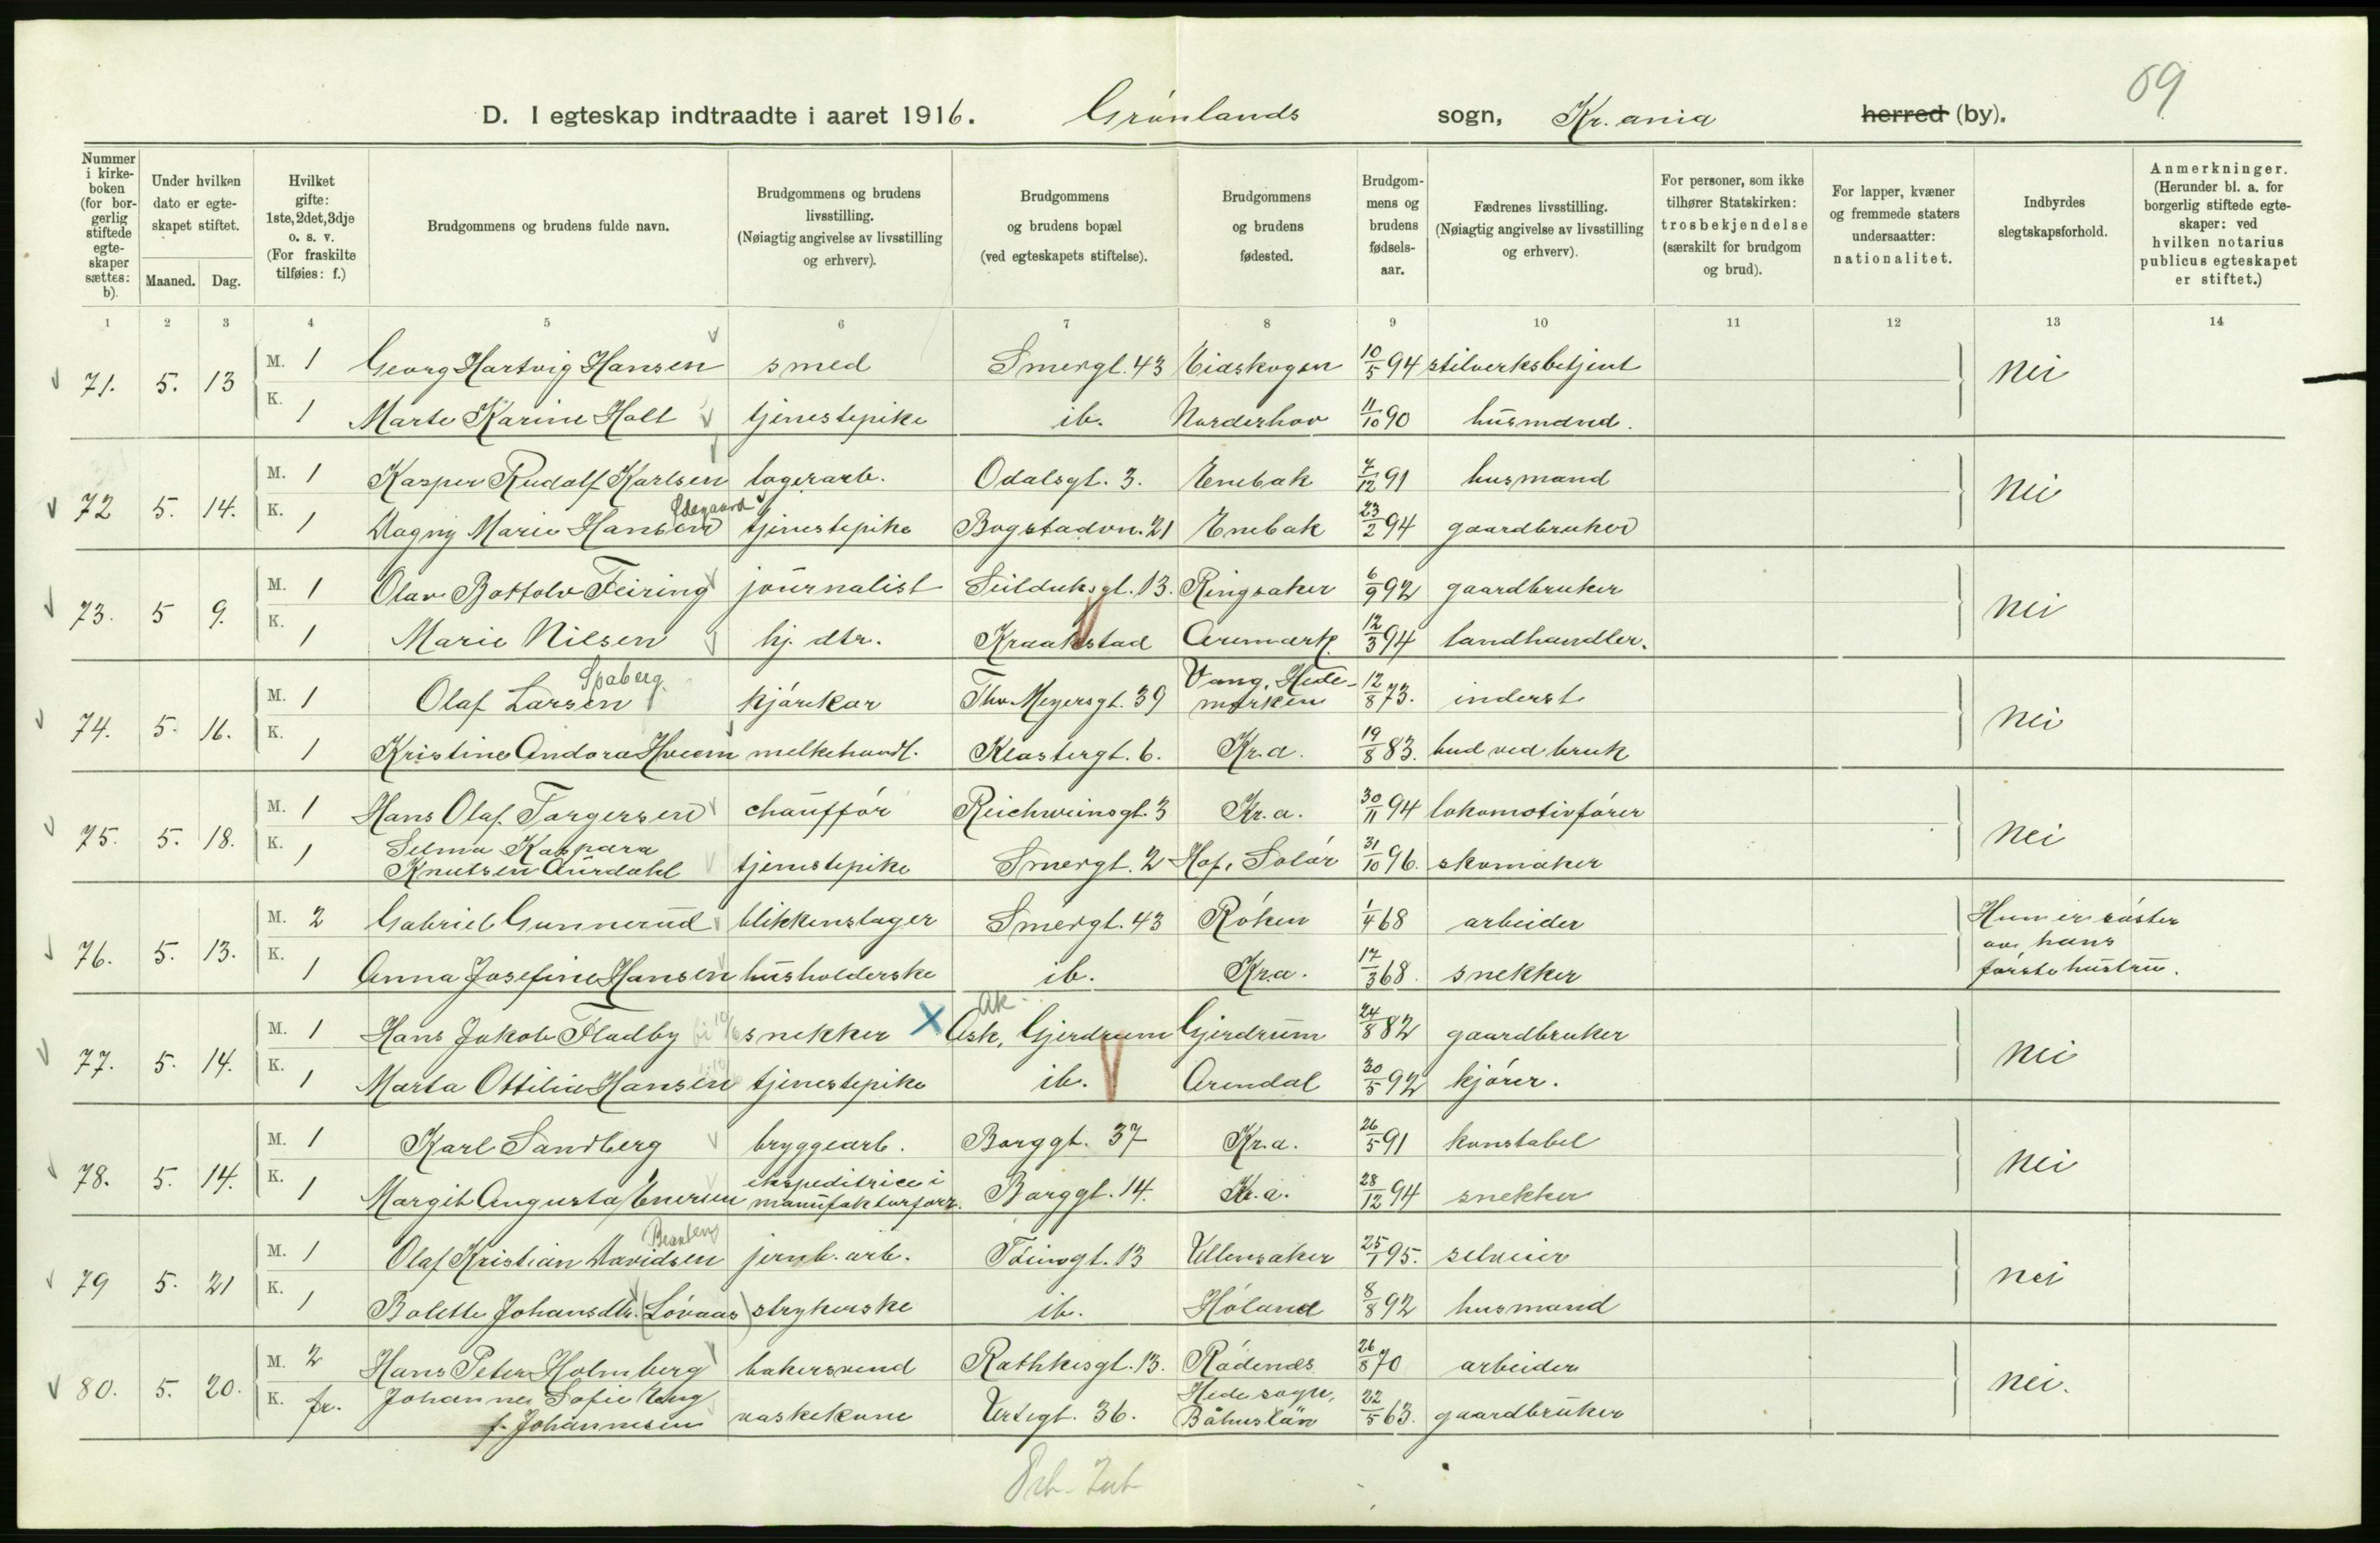 69
D. I egteskap indtraadte i aaret 1916. Grønlands sogn, Kr.ania herred (by).
Nummer i kirke-boken (for bor-gerlig stiftede egte-skaper sættes: b).
Under hvilken dato er egte-skapet stiftet.
Maaned. Dag.
Hvilket gifte: 1ste, 2det, 3dje o. s. v. (For fraskilte tilføies: f.)
Brudgommens og brudens fulde navn.
Brudgommens og brudens livsstilling. (Nøiagtig angivelse av livsstilling og erhverv).
Brudgommens og brudens bopæl (ved egteskapets stiftelse).
Brudgommens og brudens fødested.
Brudgom-mens og brudens fødsels-aar.
Fædrenes livsstilling. (Nøiagtig angivelse av livsstilling og erhverv).
For personer, som ikke tilhører Statskirken: trosbekjendelse (særskilt for brudgom og brud).
For lapper, kvæner og fremmede staters undersaatter: nationalitet.
Indbyrdes slegtskapsforhold.
Anmerkninger. (Herunder bl. a. for borgerlig stiftede egte-skaper: ved hvilken notarius publicus egteskapet er stiftet.)
1 2 3 4 5 6 7 8 9 10 11 12 13 14
71. 5. 13 M. 1 Georg Hartvig Hansen smed Smergt. 43 Eidskogen 10/5 94 stilverksbetjent nei
K. 1 Marte Karine Holt tjenestepike ib. Norderhov 11/10 90 husmand.
72 5. 14. M. 1 Kasper Rudolf Karlsen lagerarb. Odalsgt. 3. Enebak 7/12 91 husmand nei
Ødegaard
K. 1 Dagny Marie Hansen tjenestepike Bogstadvn. 21 Enebak 23/2 94 gaardbruker
73. 5 9. M. 1 Olav Bottolv Feiring journalist Seilduksgt. 13. Ringsaker 6/9 92 gaardbruker nei
K. 1 Marie Nilsen hj. dtr. Kraakstad Aremark 12/3 94 landhandler.
Spaberg.
74. 5. 16. M. 1 Olaf Larsen kjørekar Thv. Meyersgt. 39 Vang, Hede-marken 12/8 73. inderst nei
K. 1 Kristine Andora Hveem melkehandl. Klostergt. 6. Kr.a. 19/8 83. bud ved bruk
75. 5. 18. M. 1 Hans Olaf Torgersen chauffør Reichweinsgt. 3 Kr.a. 30/11 94 lokomotivfører nei
K. 1 Selma Kaspara Knutsen Aurdahl tjenestepike Smergt. 2 Hof, Solør 31/10 96. skomaker
76. 5. 13. M. 2 Gabriel Gunnerud blikkenslager Smergt. 43 Røken 1/4 68 arbeider Hun er søster av hans første hustru.
K. 1 Anna Josefine Hansen husholderske ib. Kr.a. 17/3 68. snekker
Ak
77. 5. 14. M. 1 Hans Jakob Fladby snekker Ask, Gjerdrum Gjerdrum 24/8 82 gaardbruker nei
K. 1 Marta Ottilie Hansen tjenestepike ib. Arendal 30/5 92 kjører.
78. 5. 14. M. 1 Karl Sandberg bryggearb. Borggt. 37 Kr.a. 26/5 91 konstabel nei
K. 1 Margit Augusta Enersen ekspeditrice i manufakturforr. Borggt. 14. Kr.a. 28/12 94 snekker
79 5. 21 M. 1 Olaf Kristian Davidsen jernb. arb. Tøiengt. 13 Ullensaker 25/1 95. selveier nei
K. 1 Bolette Johansdtr. (Løvaas) strykerske ib. Høland 8/8 92 husmand
80. 5. 20. M. 2 Hans Peter Holmberg bakersvend Rathkesgt. 13. Rødenes 26/8 70 arbeider nei.
K. fr. Johanne Sofie Eng f. Johannesen vaskekone Vertsgt. 36. Hede sogn, Båhuslän 22/5 63. gaardbruker